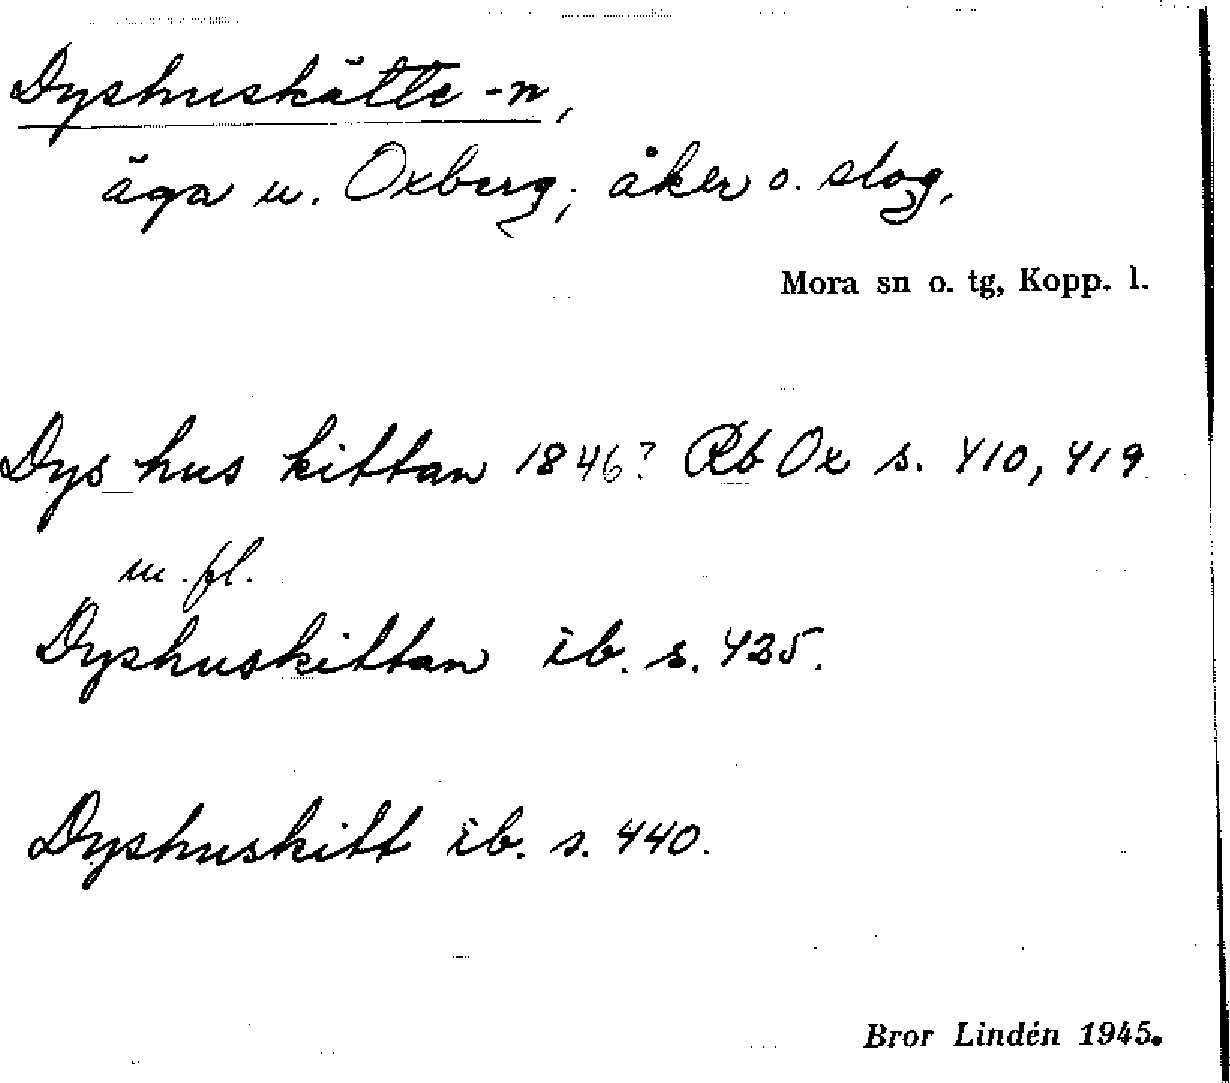 Dyshuskätte -n,
äga u. Oxberg; åker o. slog.
Mora sn o. tg, Kopp. l.
Dys hus kittan 1846? Rb Ox s. 410, 419
m. fl.
Dyshuskittan ib. s. 435.
Dyshuskitt ib. s. 440.
Bror Lindén 1945.